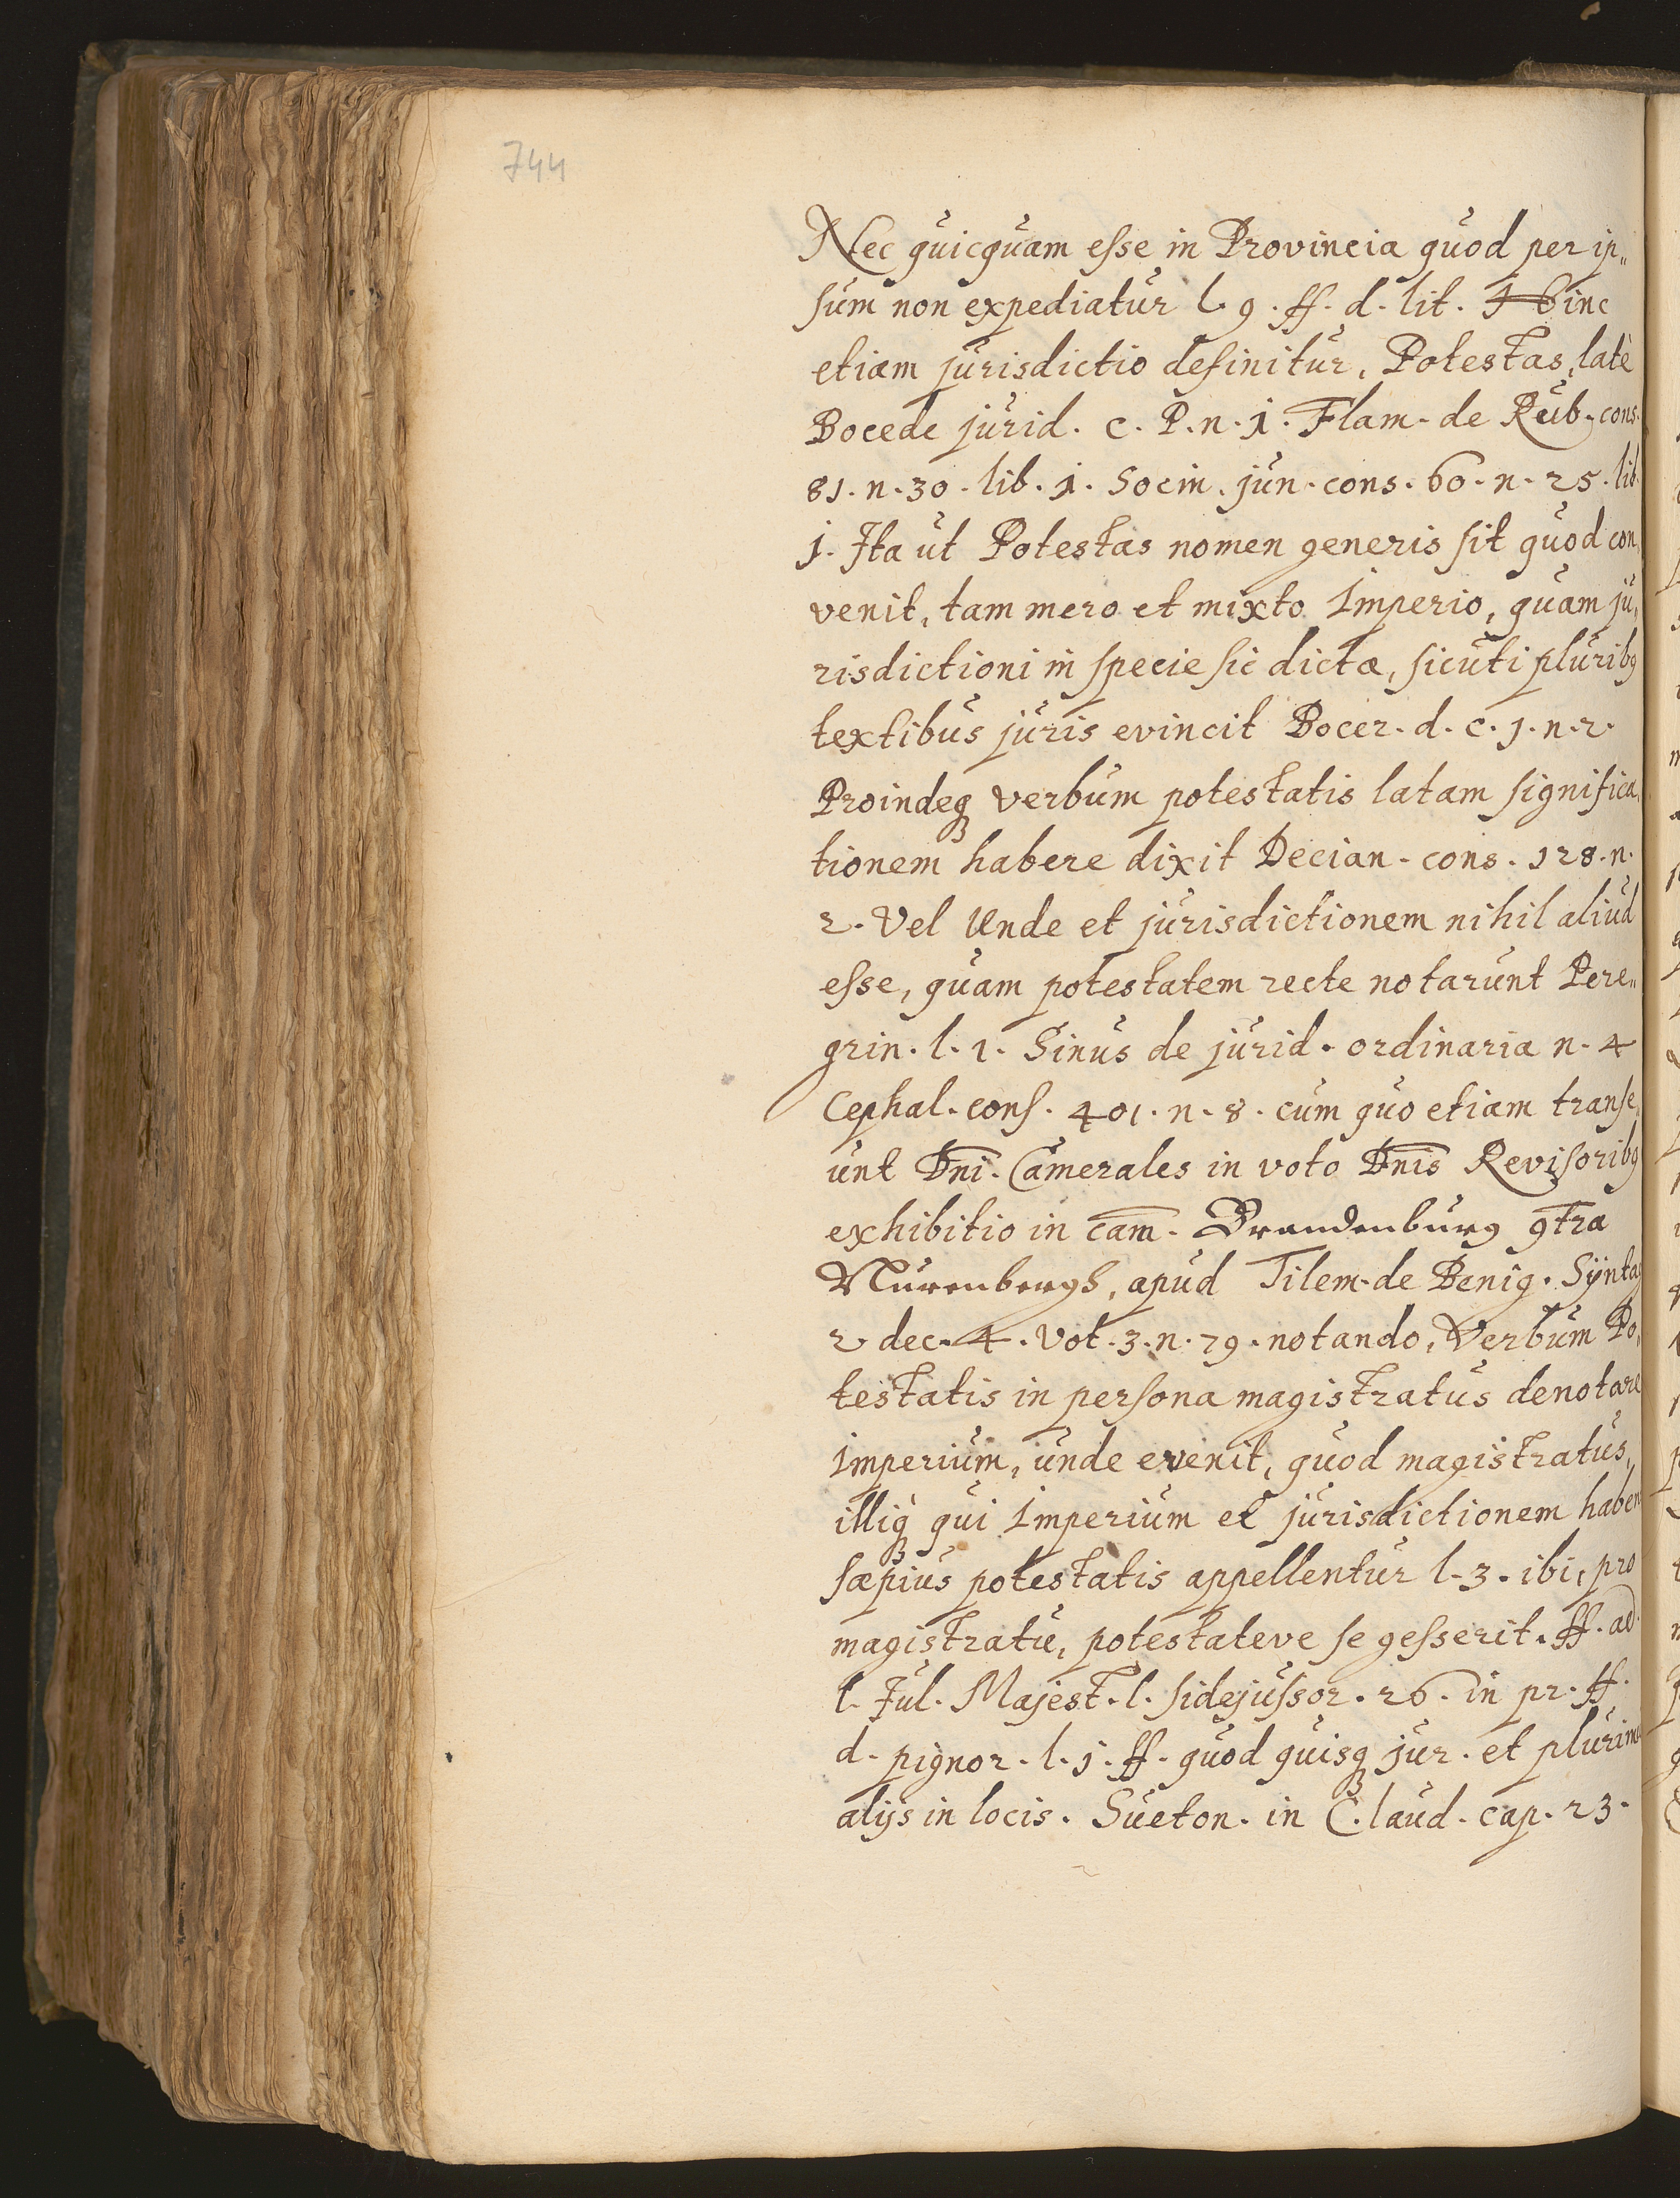 744
Nec quicquam esse in Provincia quod per ip„
sum non expediatur l. 9. ff. d. lit. Hinc
etiam jurisdictio definitur, Potestas, latè
Bocede jurid. c. P. n. 1. Flam. de Rub. cons.
81. n. 30. lib. 1. Socin. jun. cons. 60. n. 25. lib.
j. Ita ut Potestas nomen generis sit quod con„
venit, tam mero et mixto Imperio, quam ju„
risdictioni in specie sic dictæ, sicuti pluribq
textibus juris evincit Bocer. d. c. 1. n. 2.
Proindeq verbum potestatis latam significa„
tionem habere dixit Decian. cons. 128. n.
2. Vel Unde et jurisdictionem nihil aliud
esse, quam potestatem recte notarunt Pere„
grin. l. 1. Sinus de jurid. ordinaria n. 4
Cephal. cons. 401. n. 8. cum quo etiam transe„
unt Dn̅i. Camerales in voto Dn̅is Revisoribq
exhibitio in cam̅. Brandenburg 9tra
Nurenbergh, apud Tilem. de Benig. Sÿntag
2 dec. 4. vot. 3. n. 79. notando, Verbum Po„
testatis in persona magistratus denotare
Imperium, unde evenit, quod magistratus,
illiq qui Imperium et jurisdictionem haben
sæpius potestatis appellentur l. 3. ibi, pro
magistratu, potestateve se gesserit. ff. ad
l. Jul. Majest. l. fidejussor. 26. in pr. ff.
d. pignor. l. j. ff. quod quisq jur. et plurim
alijs in locis. Sueton. in Claud. cap. 23.